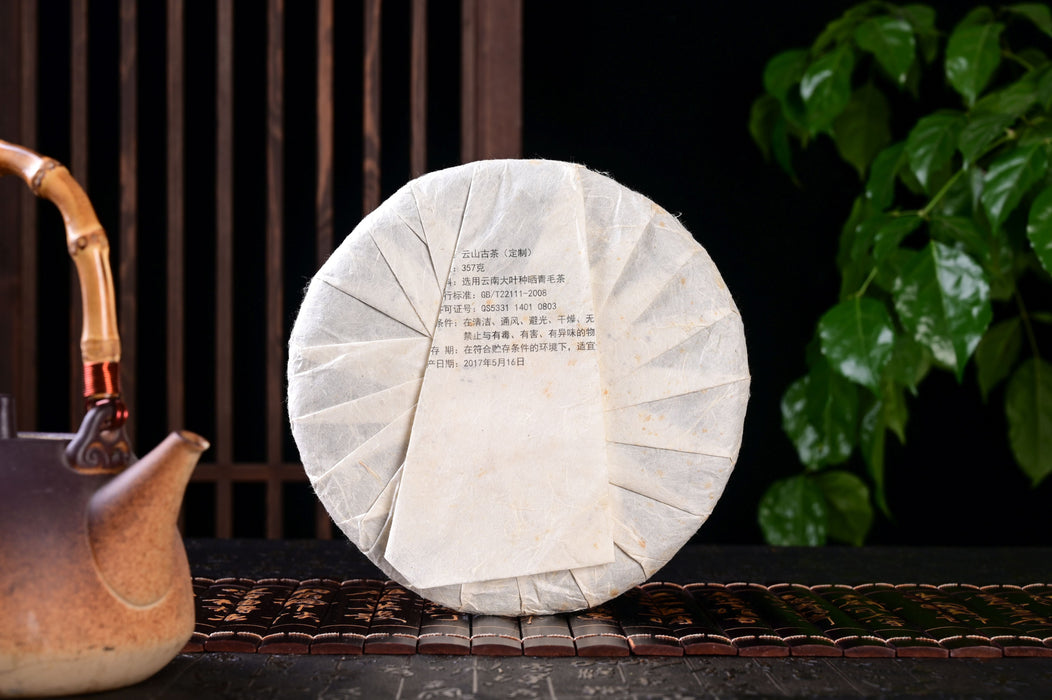 ：云山古茶（定制）
：357克
料：选用云南大叶种晒青毛茶
行标准：GB/T22111-2008
许可证号：QS5331 1401 0803
条件：在清洁、通风、避光、干燥、无
禁止与有毒、有害、有异味的物
存 期：在符合贮存条件的环境下，适宜
产日期：2017年5月16日